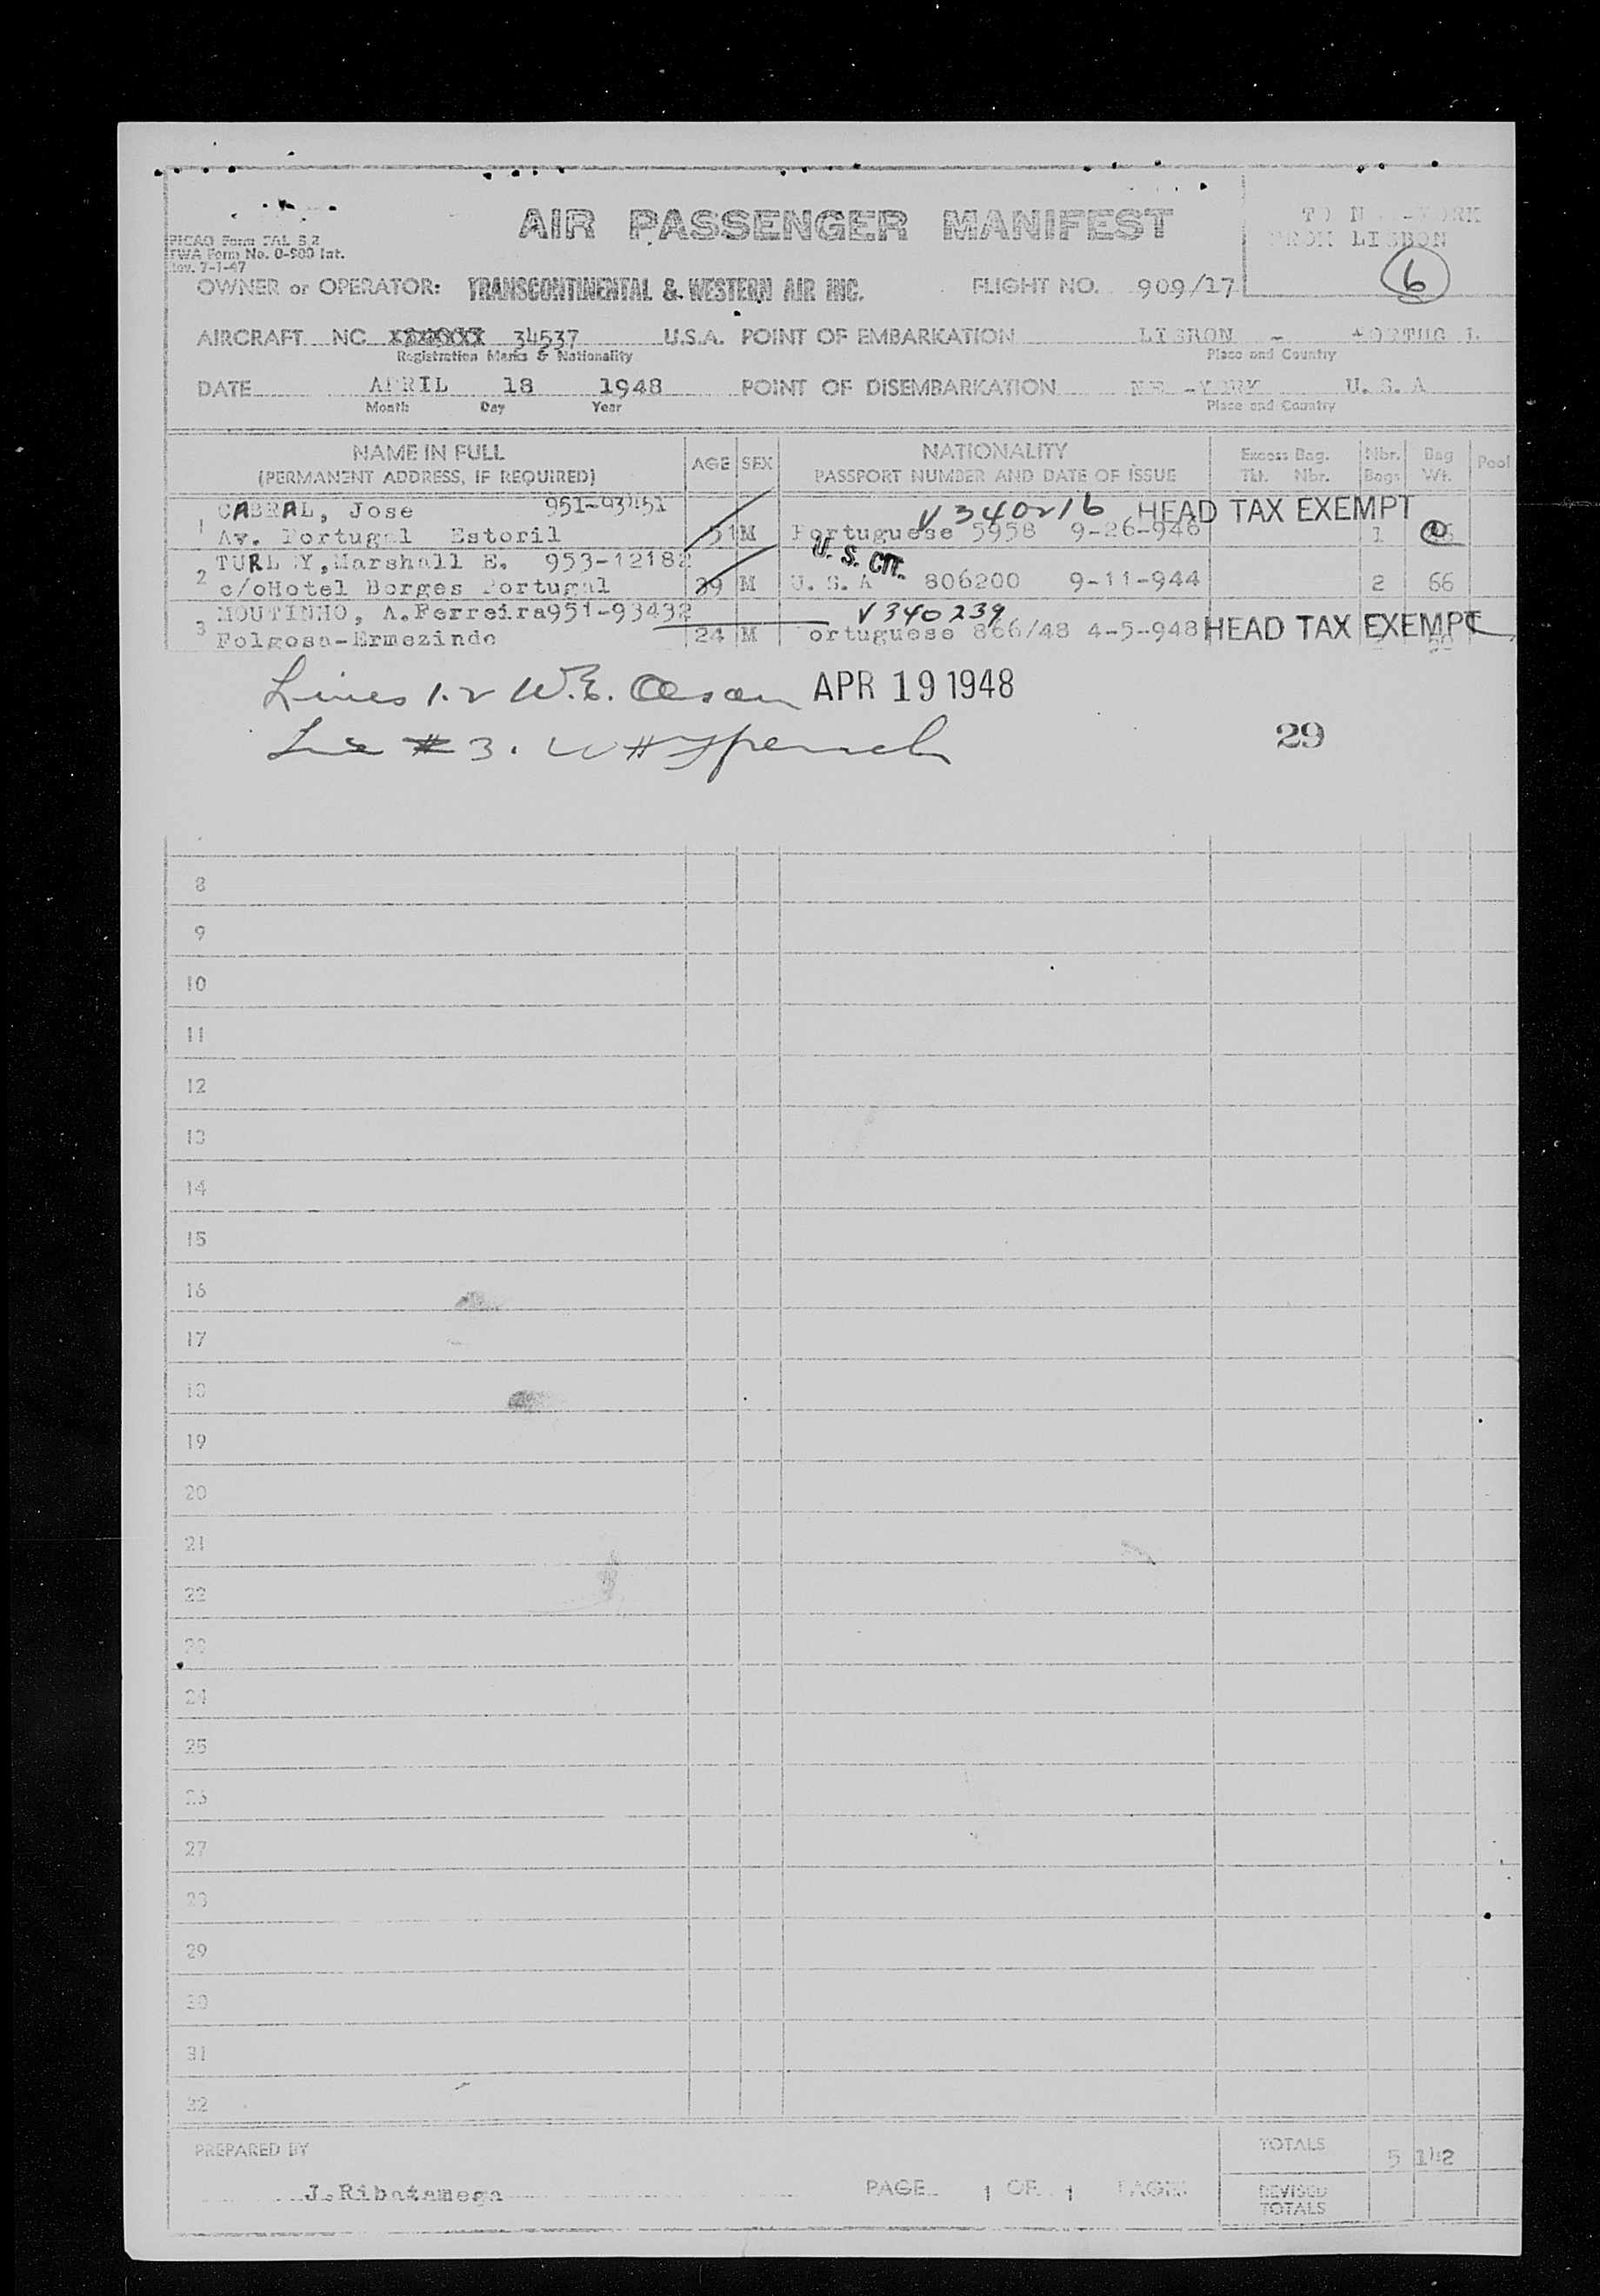 AIR PASSENGER MANIFEST
FROM LISBON
PICAO Form FAL S.2
TWA Form No. 0-900 Int.
Rev. 7-1-47
6
OWNER or OPERATOR: TRANSCONTINENTAL & WESTERN AIR INC. FLIGHT NO. 909/17
AIRCRAFT NC 34537 U.S.A. POINT OF EMBARKATION LISBON -
Registration Marks & Nationality Place and Country
DATE APRIL 18 1948 POINT OF DISEMBARKATION U.S.A
Month Day Year Place and Country
NAME IN FULL AGE SEX NATIONALITY Excess Bag. Nbr. Bag Pool
(PERMANENT ADDRESS, IF REQUIRED) PASSPORT NUMBER AND DATE OF ISSUE Tkt. Nbr. Bags Wt.
1 CABRAL, Jose 951-93451 V340216 HEAD TAX EXEMPT
Av. Portugal Estoril 51 M Portuguese 5958 9-26-946 1
2 TURL Y,Marshall E. 953-12182 U.S. CIT.
c/oHotel Borges Portugal 39 M U.S.A 806200 9-11-944 2 66
3 MOUTINHO, A.Ferreira951-93432 V340239
Folgosa-Ermezinde 24 M ortuguese 866/48 4-5-948 HEAD TAX EXEMPT
Lines 1.2 W.E. Olsen APR 19 1948
#3. 29
8
9
10
11
12
13
14
15
16
17
18
19
20
21
22
23
24
25
26
27
28
29
30
31
32
PREPARED BY TOTALS 5 142
J.Ribatamega PAGE 1 OF 1 PAGES
REVISED
TOTALS